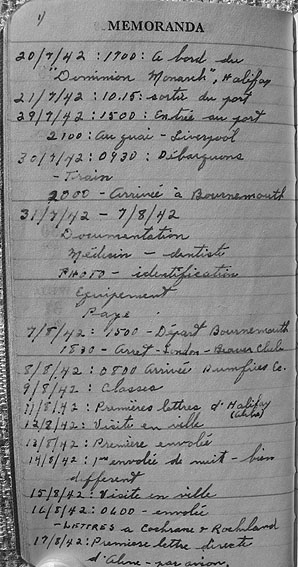 1/
MEMORANDA
20/7/42 : 1700: à bord du
"Dominion Monarch", Halifax
21/7/42 : 10.15: sortie du port
29/7/42 : 1500: Entrée au port
2100: Au quai - Liverpool
30/7/42 : 0930 : Débarquons
- Train
2000 - Arrivée à Bournemouth
31/7/42 - 7/8/42
Documentation
Médecin - dentiste
PHOTO - identification
Equipement
Paye
7/8/42 : 1500 - Départ Bournemouth
1830 - Arret - London - Beaver Club
8/8/42 : 0800 Arrivée Dumfries
9/8/42 : Classes
11/8/42 : Premières lettres d'Halifax
12/8/42 : Visite en ville
13/8/42 : Première envolée
14/8/42 : 1ère envolée de nuit - bien
different
15/8/42 : Visite en ville
16/8/42 : 0600 - envolée
- LETTRES à Cochrane & Rochland
17/8/42 : Premiere lettre directe
d'Aline - par avion.